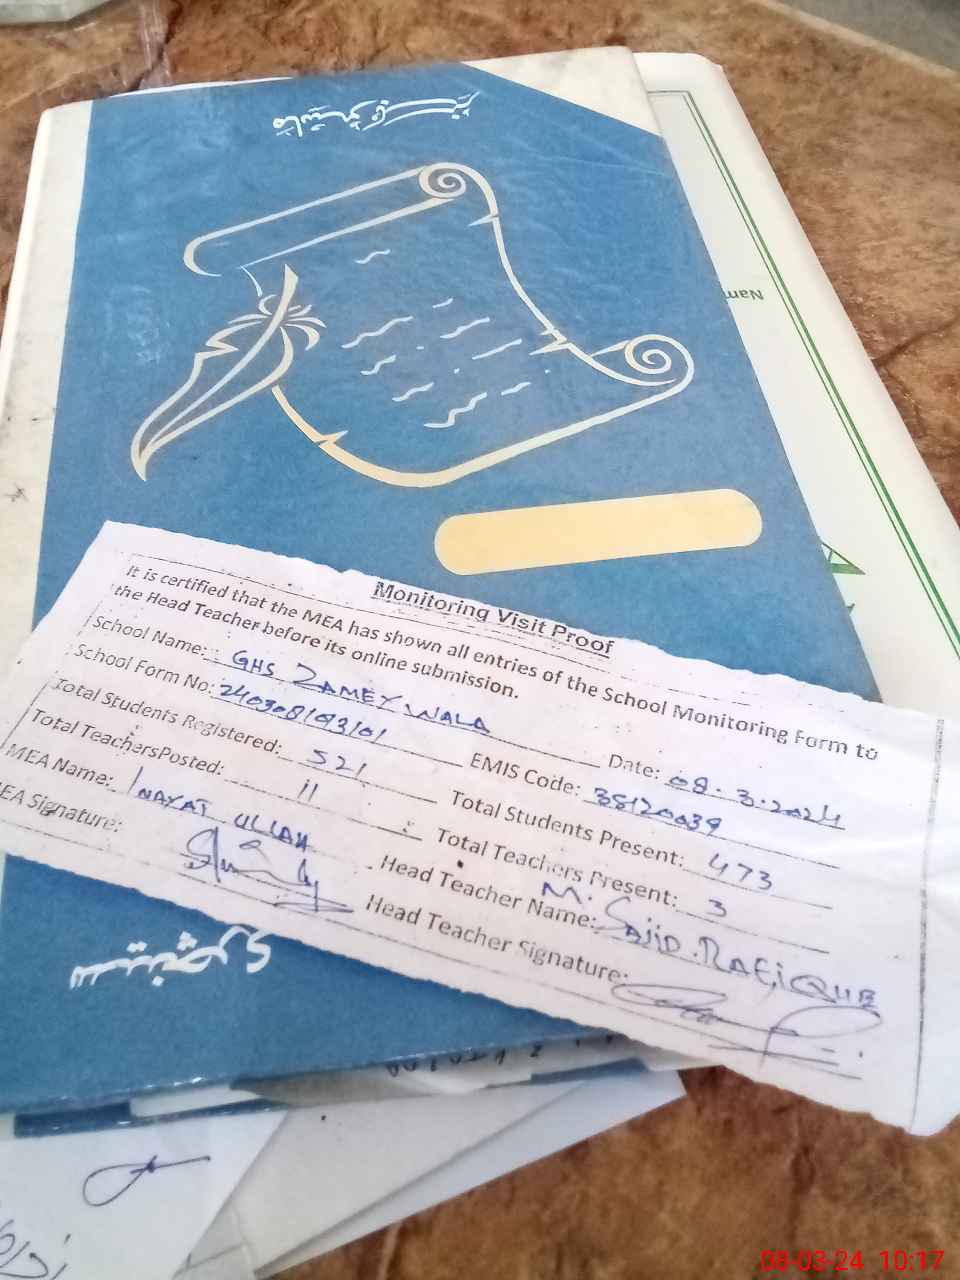 Monitoring Visit Proof
It is certified that the MEA has shown all entries of the School Monitoring Form to
the Head Teacher before its online submission.
School Name: GHS ZAMEY WALA Date: 08.3.2024
School Form No: 240308/93/01 EMIS Code: 38120039
Total Students Registered: 521 Total Students Present: 473
Total TeachersPosted: 11 Total Teachers Present: 3
MEA Name: INAYAT ULLAH Head Teacher Name: M. SAJID.RAFIQUE
MEA Signature: Head Teacher Signature:
Nam
08-03-24 10:17